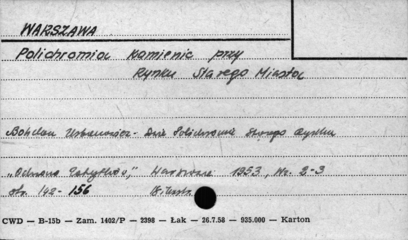 WARSZAWA
Polichromia kamienic przy
Rynku Starego Miasta
Bohdan Urbanowicz - Polichromie Rynku
"Ochrona Zabytków", Warszawa 1953, Nr. 2-3
str. 142-156
CWD — B-15b — Zam. 1402/P — 2398 — Łak — 26.7.58 — 935.000 — Karton